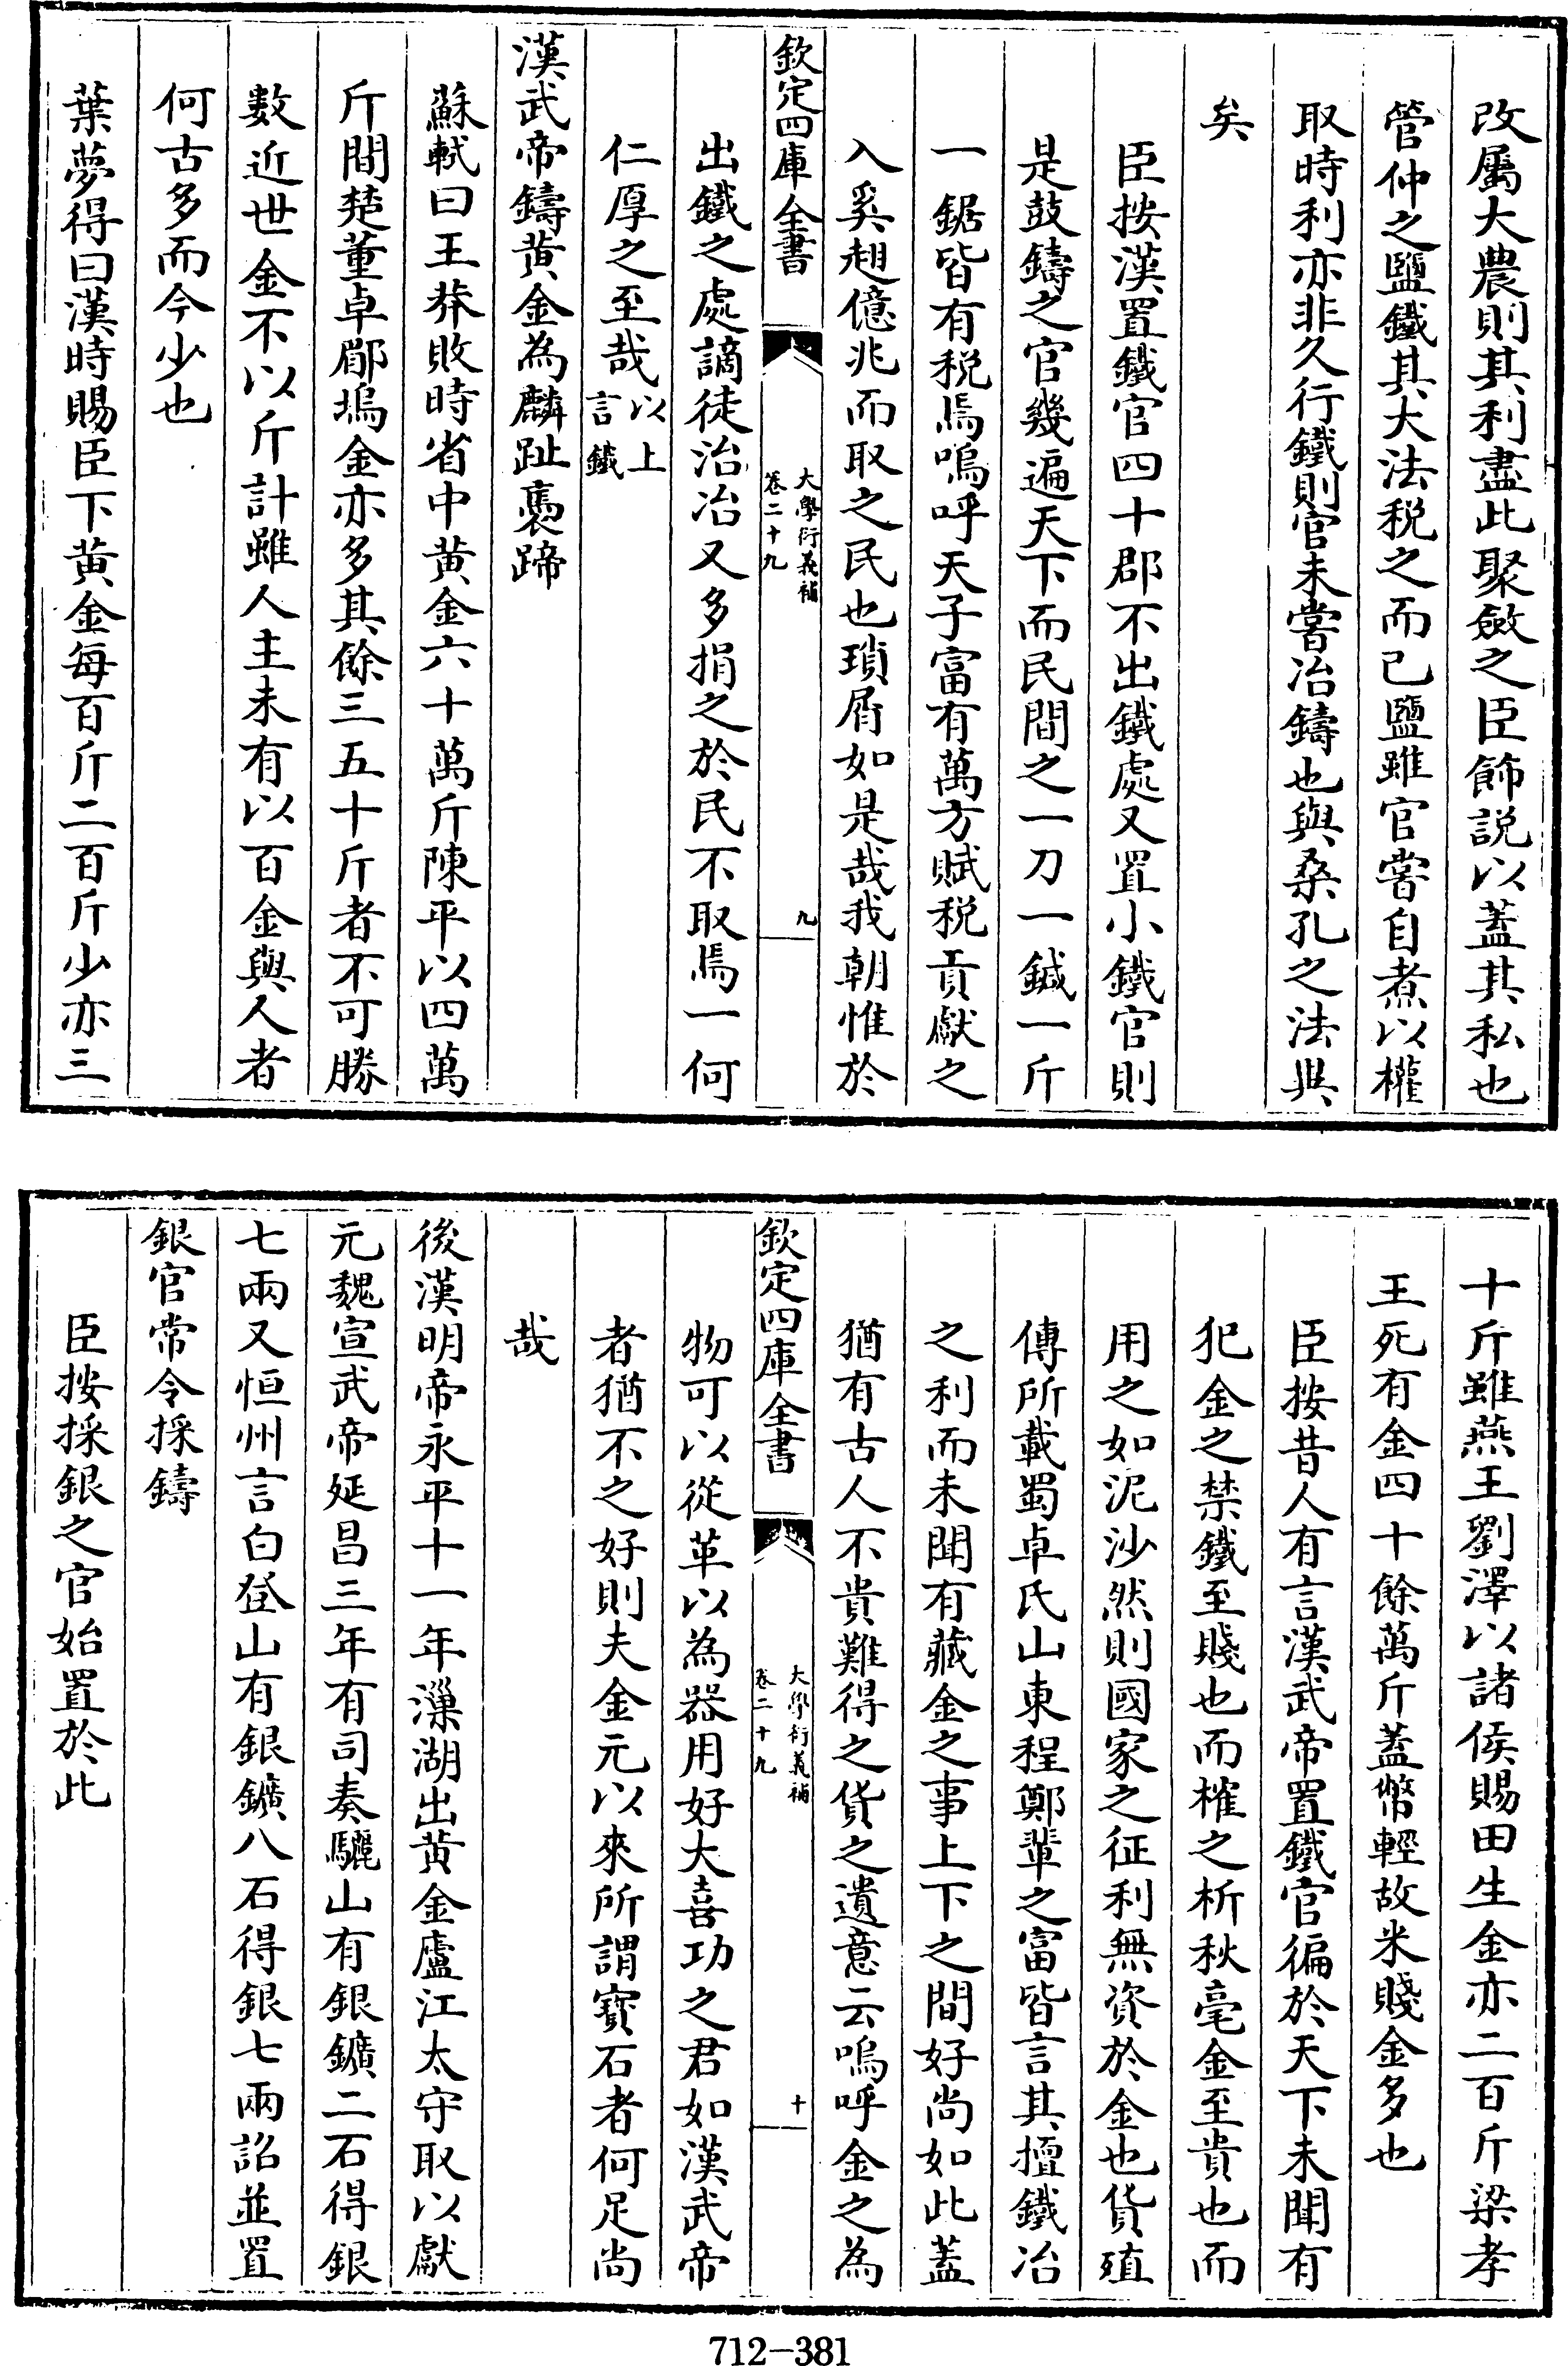 改屬大農則其利盡此聚斂之臣飾説以蓋其私也
管仲之鹽鐵其大法税之而已鹽雖官嘗自煮以權
取時利亦非久行鐵則官未嘗冶鑄也與桑孔之法異
矣
臣按漢置鐵官四十郡不出鐵處又置小鐵官則
是鼓鑄之官幾遍天下而民間之一刀一鍼一斤
一鋸皆有税焉嗚呼天子富有萬方賦税貢獻之
入奚趐億兆而取之民也瑣屑如是哉我朝惟於
欽定四庫全書
大學衍義補
卷二十九
九
出鐵之處謫徒治冶又多捐之於民不取焉一何
仁厚之至哉以上
言鐵
漢武帝鑄黄金為麟趾褭蹄
蘇軾曰王莽敗時省中黄金六十萬斤陳平以四萬
斤間楚董卓郿塢金亦多其餘三五十斤者不可勝
數近世金不以斤計雖人主未有以百金與人者
何古多而今少也
葉夢得曰漢時賜臣下黄金每百斤二百斤少亦三
十斤雖燕王劉澤以諸侯賜田生金亦二百斤梁孝
王死有金四十餘萬斤蓋幣輕故米賤金多也
臣按昔人有言漢武帝置鐵官徧於天下未聞有
犯金之禁鐵至賤也而榷之析秋毫金至貴也而
用之如泥沙然則國家之征利無資於金也貨殖
傳所載蜀卓氏山東程鄭輩之富皆言其擅鐵冶
之利而未聞有藏金之事上下之間好尚如此蓋
猶有古人不貴難得之貨之遺意云嗚呼金之為
欽定四庫全書
大學衍義補
卷二十九
十
物可以從革以為器用好大喜功之君如漢武帝
者猶不之好則夫金元以來所謂寳石者何足尚
哉
後漢明帝永平十一年漅湖出黄金廬江太守取以獻
元魏宣武帝延昌三年有司奏驪山有銀鑛二石得銀
七兩又恒州言白登山有銀鑛八石得銀七兩詔並置
銀官常令採鑄
臣按採銀之官始置於此
712-381